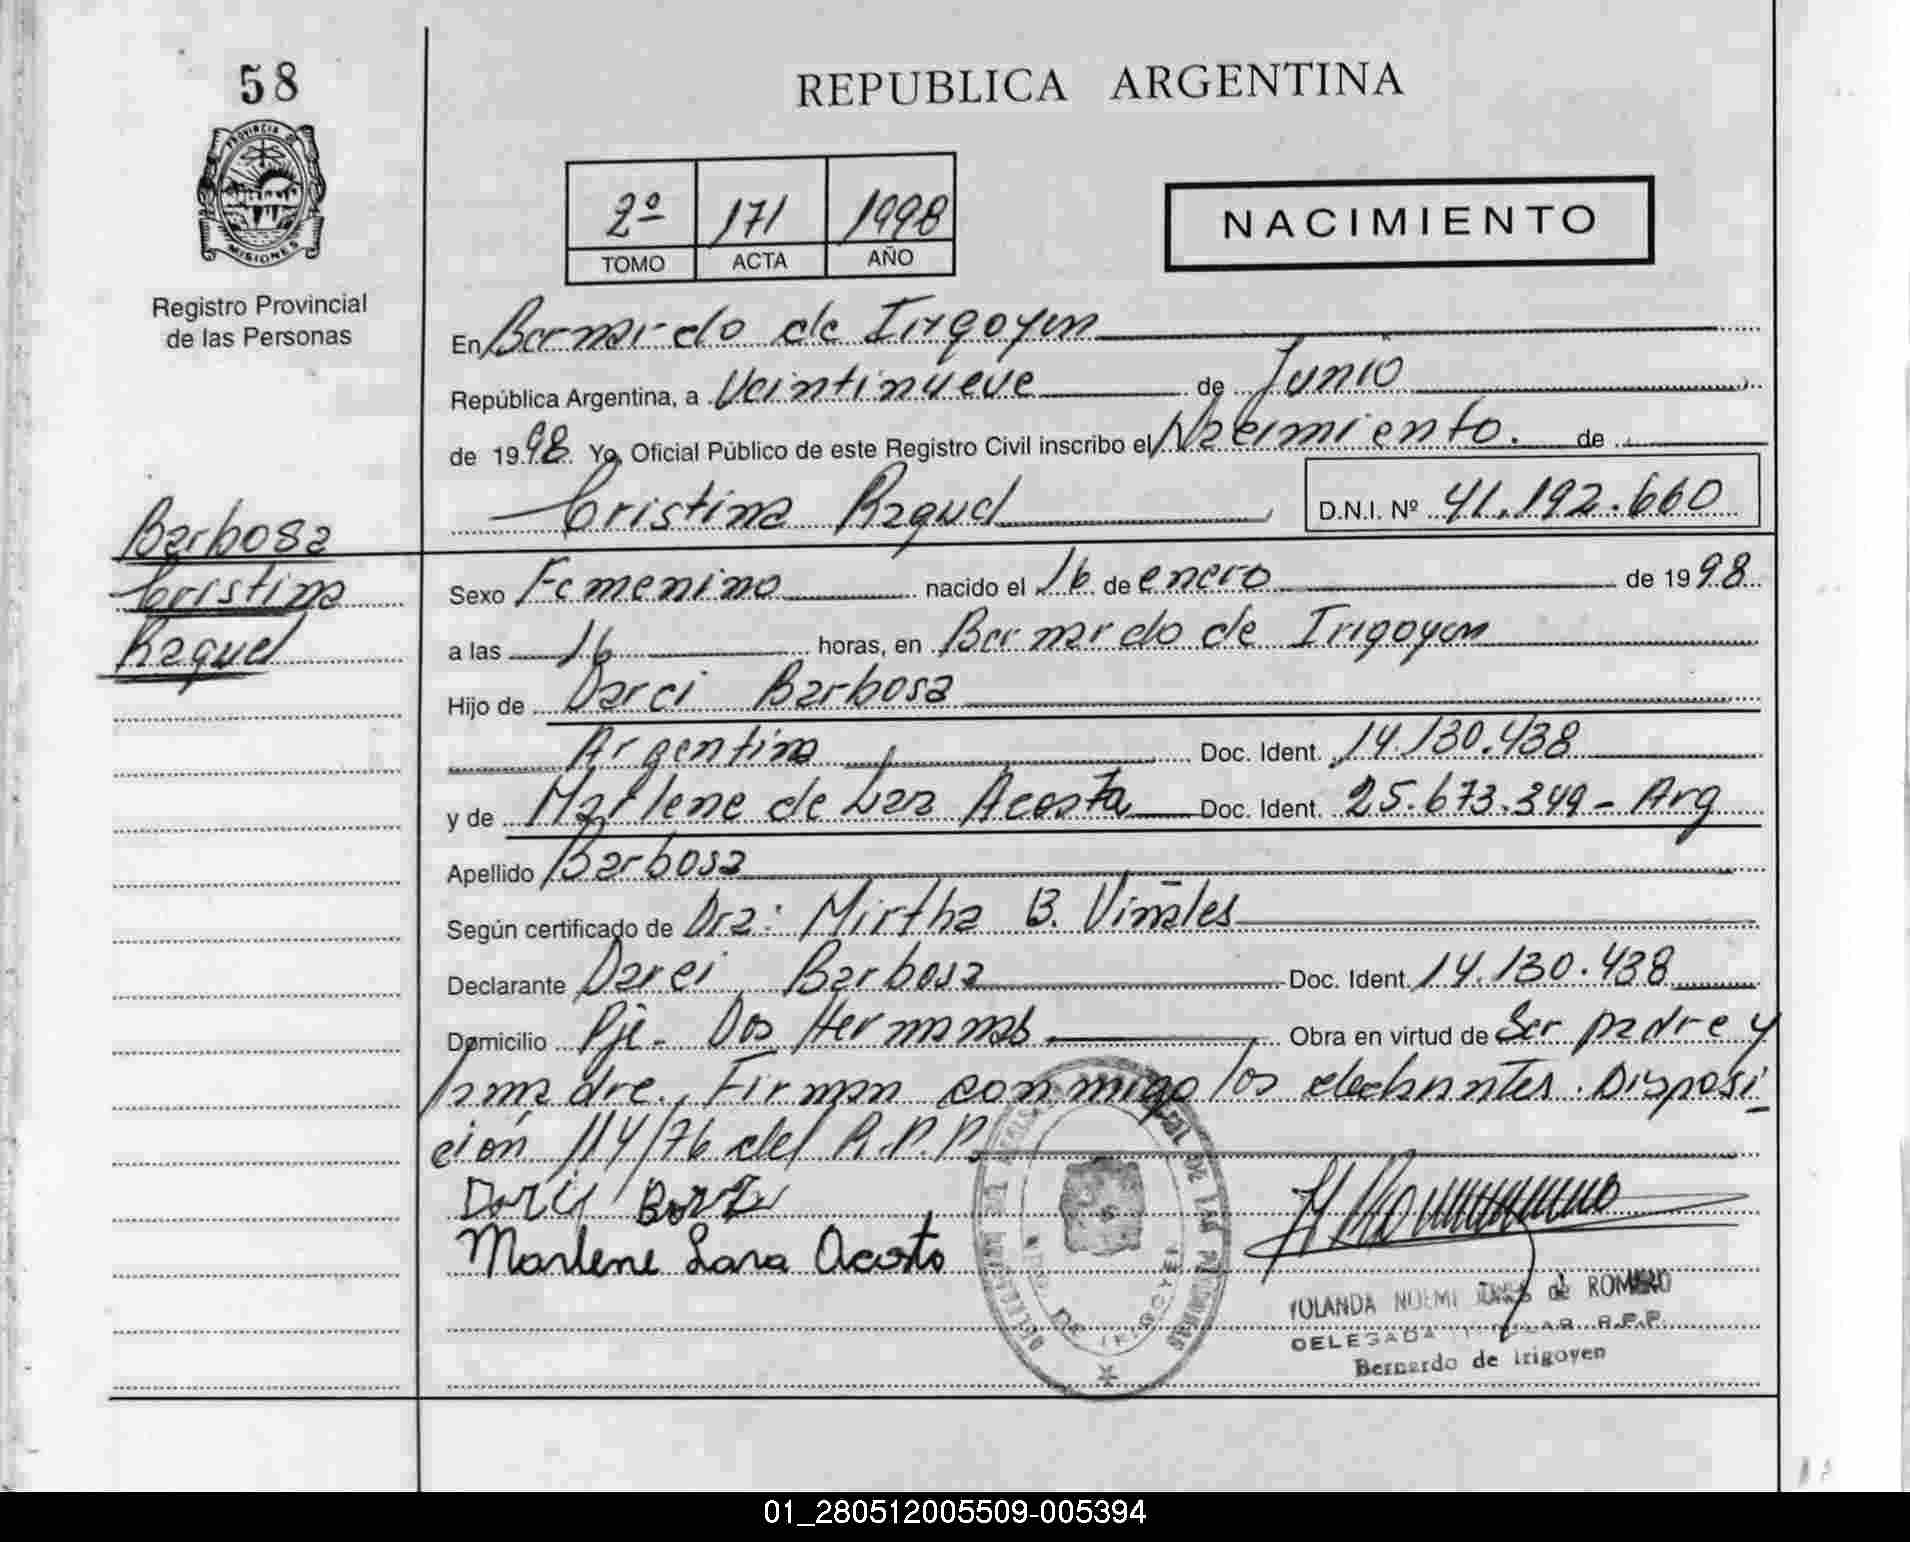 58
PROVINCIA DE
MISIONES
Registro Provincial
de las Personas
REPUBLICA ARGENTINA
2º 171 1998
TOMO ACTA AÑO
NACIMIENTO
En Bernardo de Irigoyen
República Argentina, a Veintinueve de Junio
de 1998 Yo, Oficial Público de este Registro Civil inscribo el Nacimiento. de
Cristina Raquel D.N.I. Nº 41.192.660
Barbosa
Cristina
Raquel
Sexo Femenino nacido el 16 de enero de 1998
a las 16 horas, en Bernardo de Irigoyen
Hijo de Darci Barbosa
Argentina Doc. Ident. 14.130.438
y de Marlene de Lara Acosta Doc. Ident. 25.673.349 - Arg
Apellido Barbosa
Según certificado de Dra: Mirtha B. Viñales
Declarante Darci Barbosa Doc. Ident. 14.130.438
Domicilio Pje. Dos Hermanas Obra en virtud de Ser padre y
la madre. Firman conmigo los declarantes. Disposi
ción 114/76 del R.P.P.
Marlene Lara Acosta
YOLANDA NOEMI de ROMERO
DELEGADA TITULAR R.P.P.
Bernardo de Irigoyen
DE LAS PERSONAS
DE IRIGOYEN
01_280512005509-005394